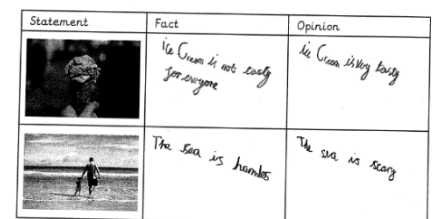 Statement Fact Opinion
Ice Cream is not tasty
for everyone
Ice Cream is very tasty
The sea is harmles
The sea is scary